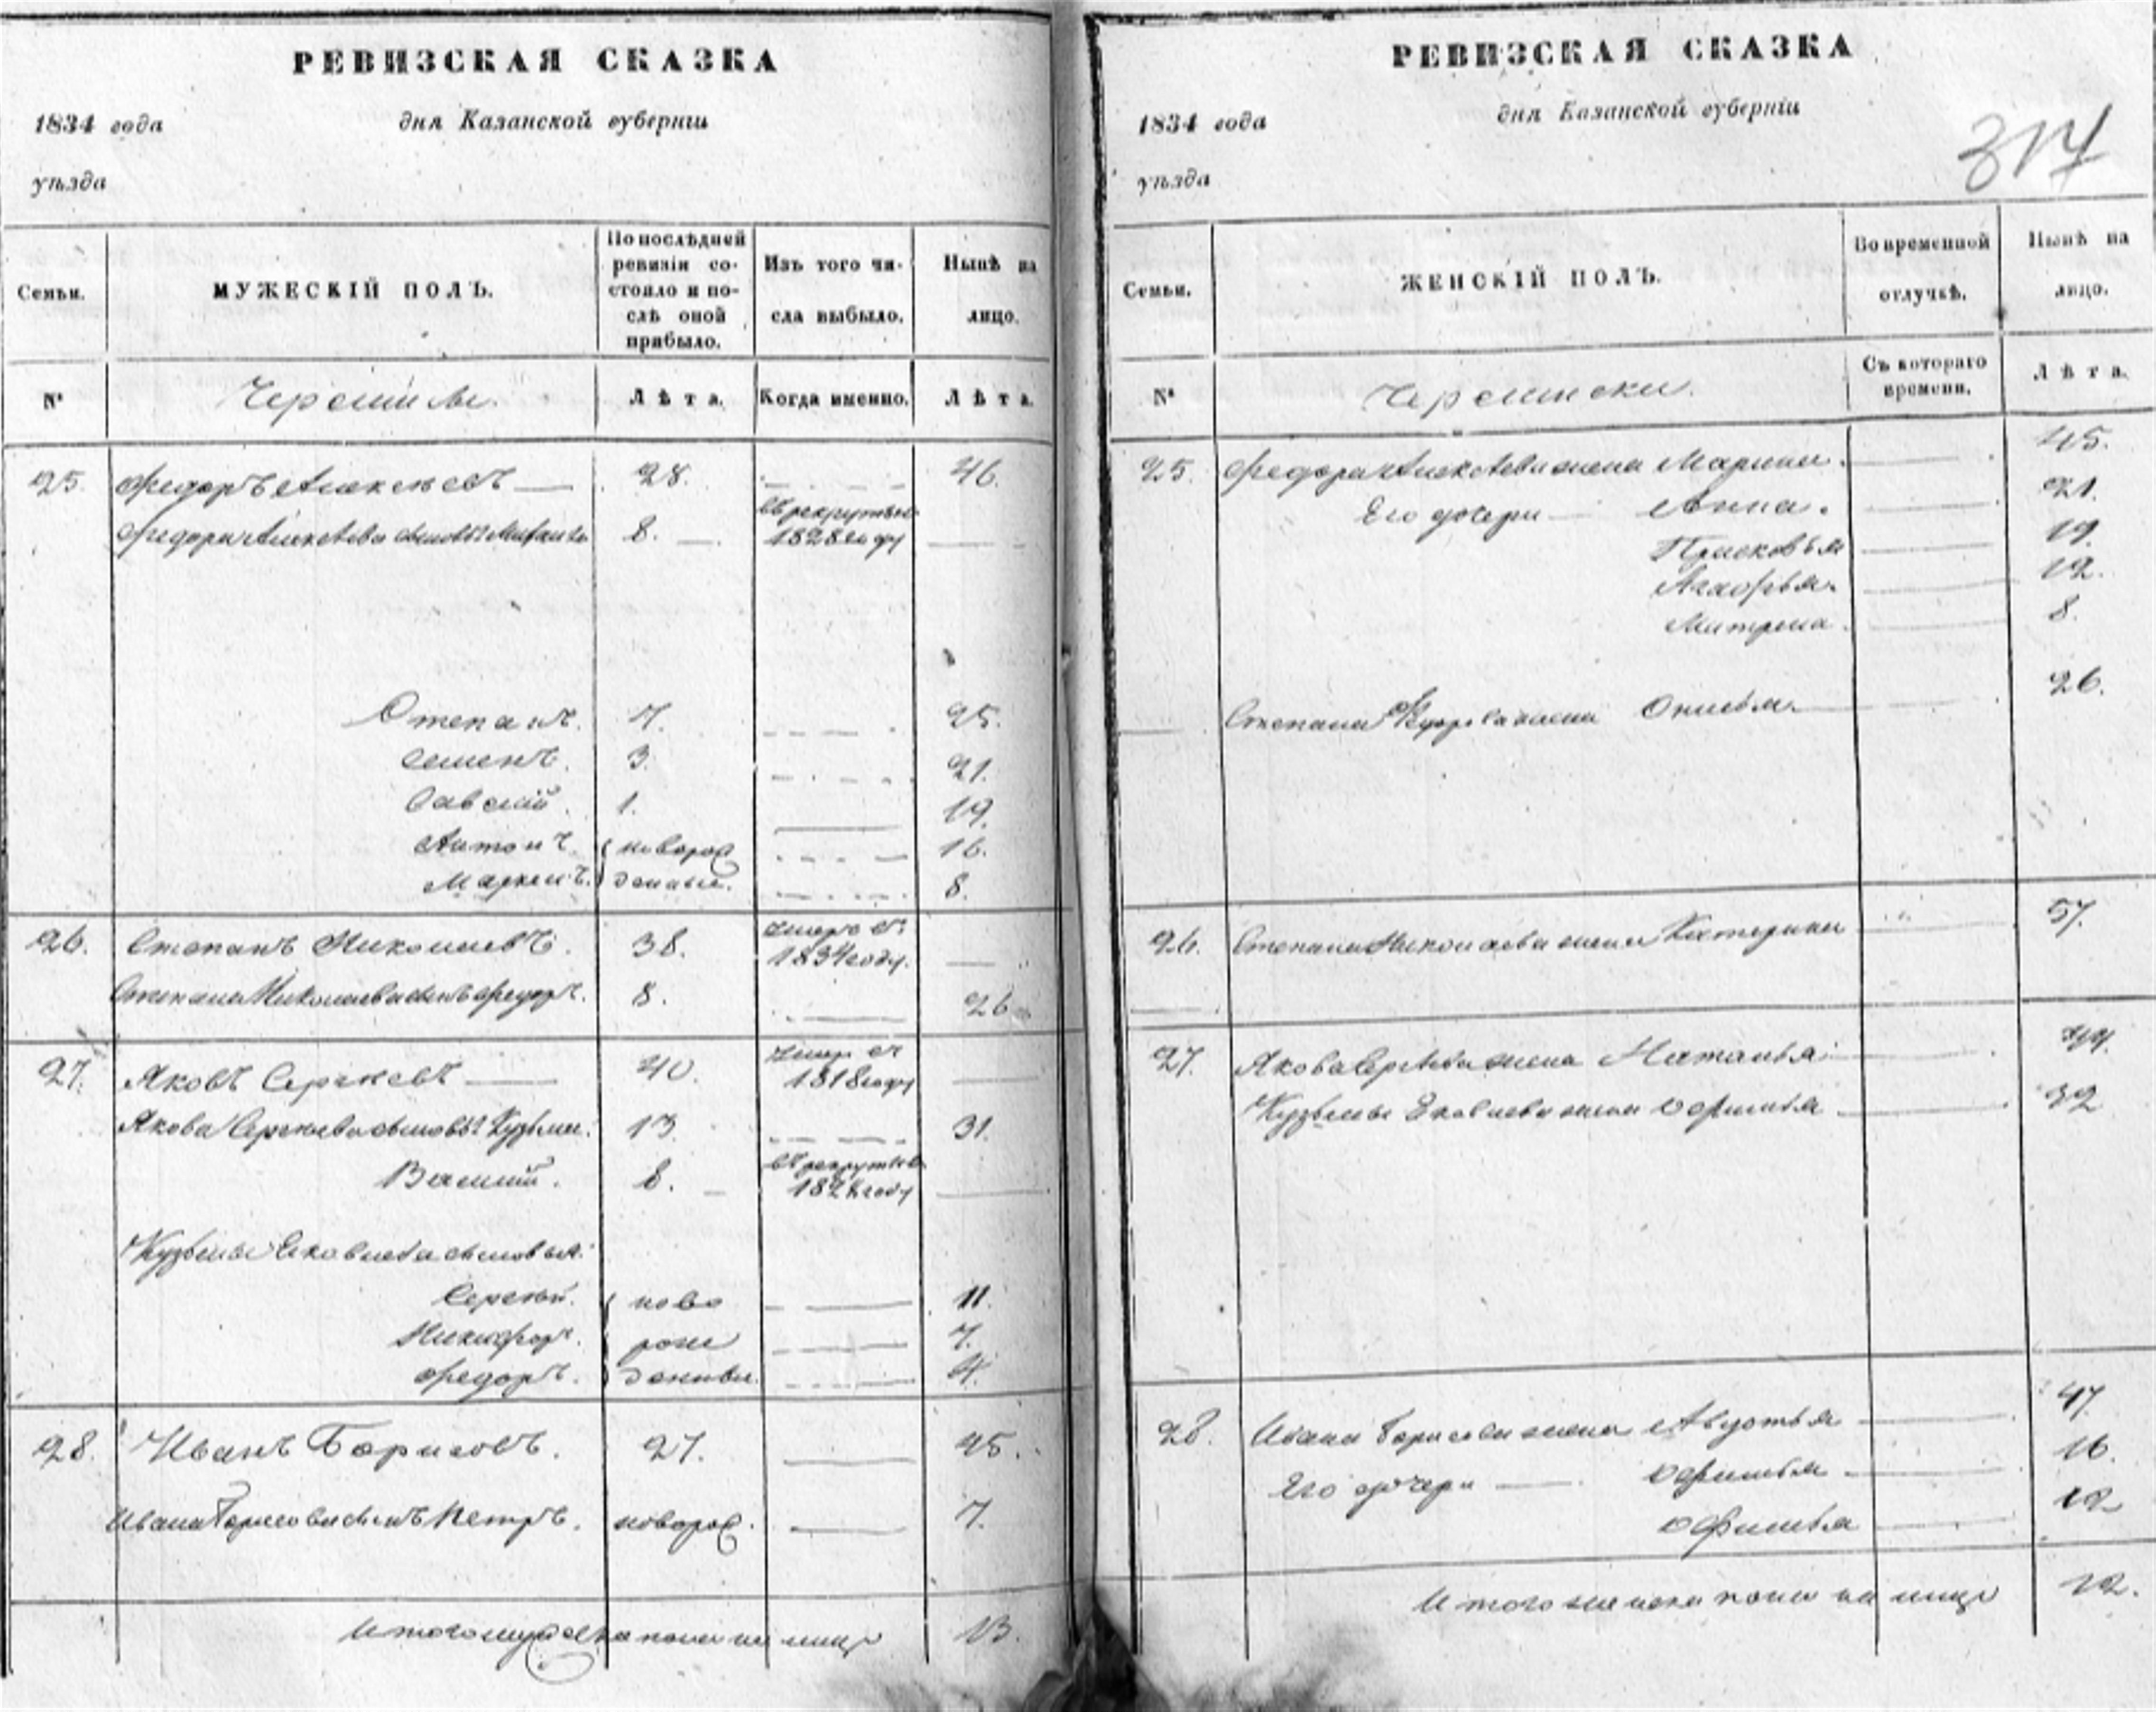 РЕВИЗСКАЯ СКАЗКА
1834 года дня Казанской губернiи
уѣзда
Семьи. МУЖЕСКIЙ ПОЛЪ. По послѣдней ревизiи состояло и послѣ оной прибыло. Изъ того числа выбыло. Нынѣ на лицо.
№ Черемисы Лѣта. Когда именно. Лѣта.
25. Федоръ Алексѣевъ 28. 46.
Федора Алексѣева сыновья 8. въ рекруты 1828 году
Степанъ. 7. 25.
Семенъ. 3. 21.
Савелiй. 1. 19.
Антонъ. новорож 16.
Маркелъ. денные. 8.
26. Степанъ Николаевъ. 38. умеръ въ 1834 году.
Степана Николаева сынъ Федоръ. 8. 26
27. Яковъ Сергѣевъ 40. умер въ 1818 году
Якова Сергѣева сыновья Кузьма. 13. 31.
Василiй. 8. въ рекруты 1828 году
Кузьмы Яковлева сыновья:
Сергѣй. ново 11.
Никифоръ. рож 7.
Федоръ. денные. 4.
28. Иванъ Борисовъ. 27. 45.
Ивана Борисова сынъ Петръ. новорож. 7.
Итого мужеска пола на лицо 13.
РЕВИЗСКАЯ СКАЗКА
1834 года дня Казанской губернiи
уѣзда
317
Семьи. ЖЕНСКIЙ ПОЛЪ. Во временной отлучкѣ. Нынѣ на лицо.
№ Черемиски. Съ котораго времени. Лѣта.
25. Федора Алексѣева жена Марина. 45.
Его дочери Анна. 21.
Прасковья 19.
Агафья. 12.
Матрена. 8.
Степана Федорова жена 26.
26. Степана Николаева жена Катерина 57.
27. Якова Сергѣева жена Наталья
Кузьмы Яковлева жена Офимья 32
28. Ивана Борисова жена Авдотья 47
Его дочери Офимья 16.
Офимья 12
Итого женска пола на лицо 12.